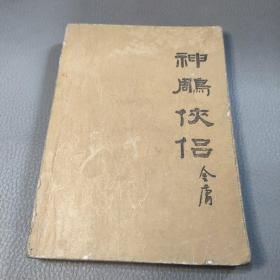 神鵰俠侶
金庸